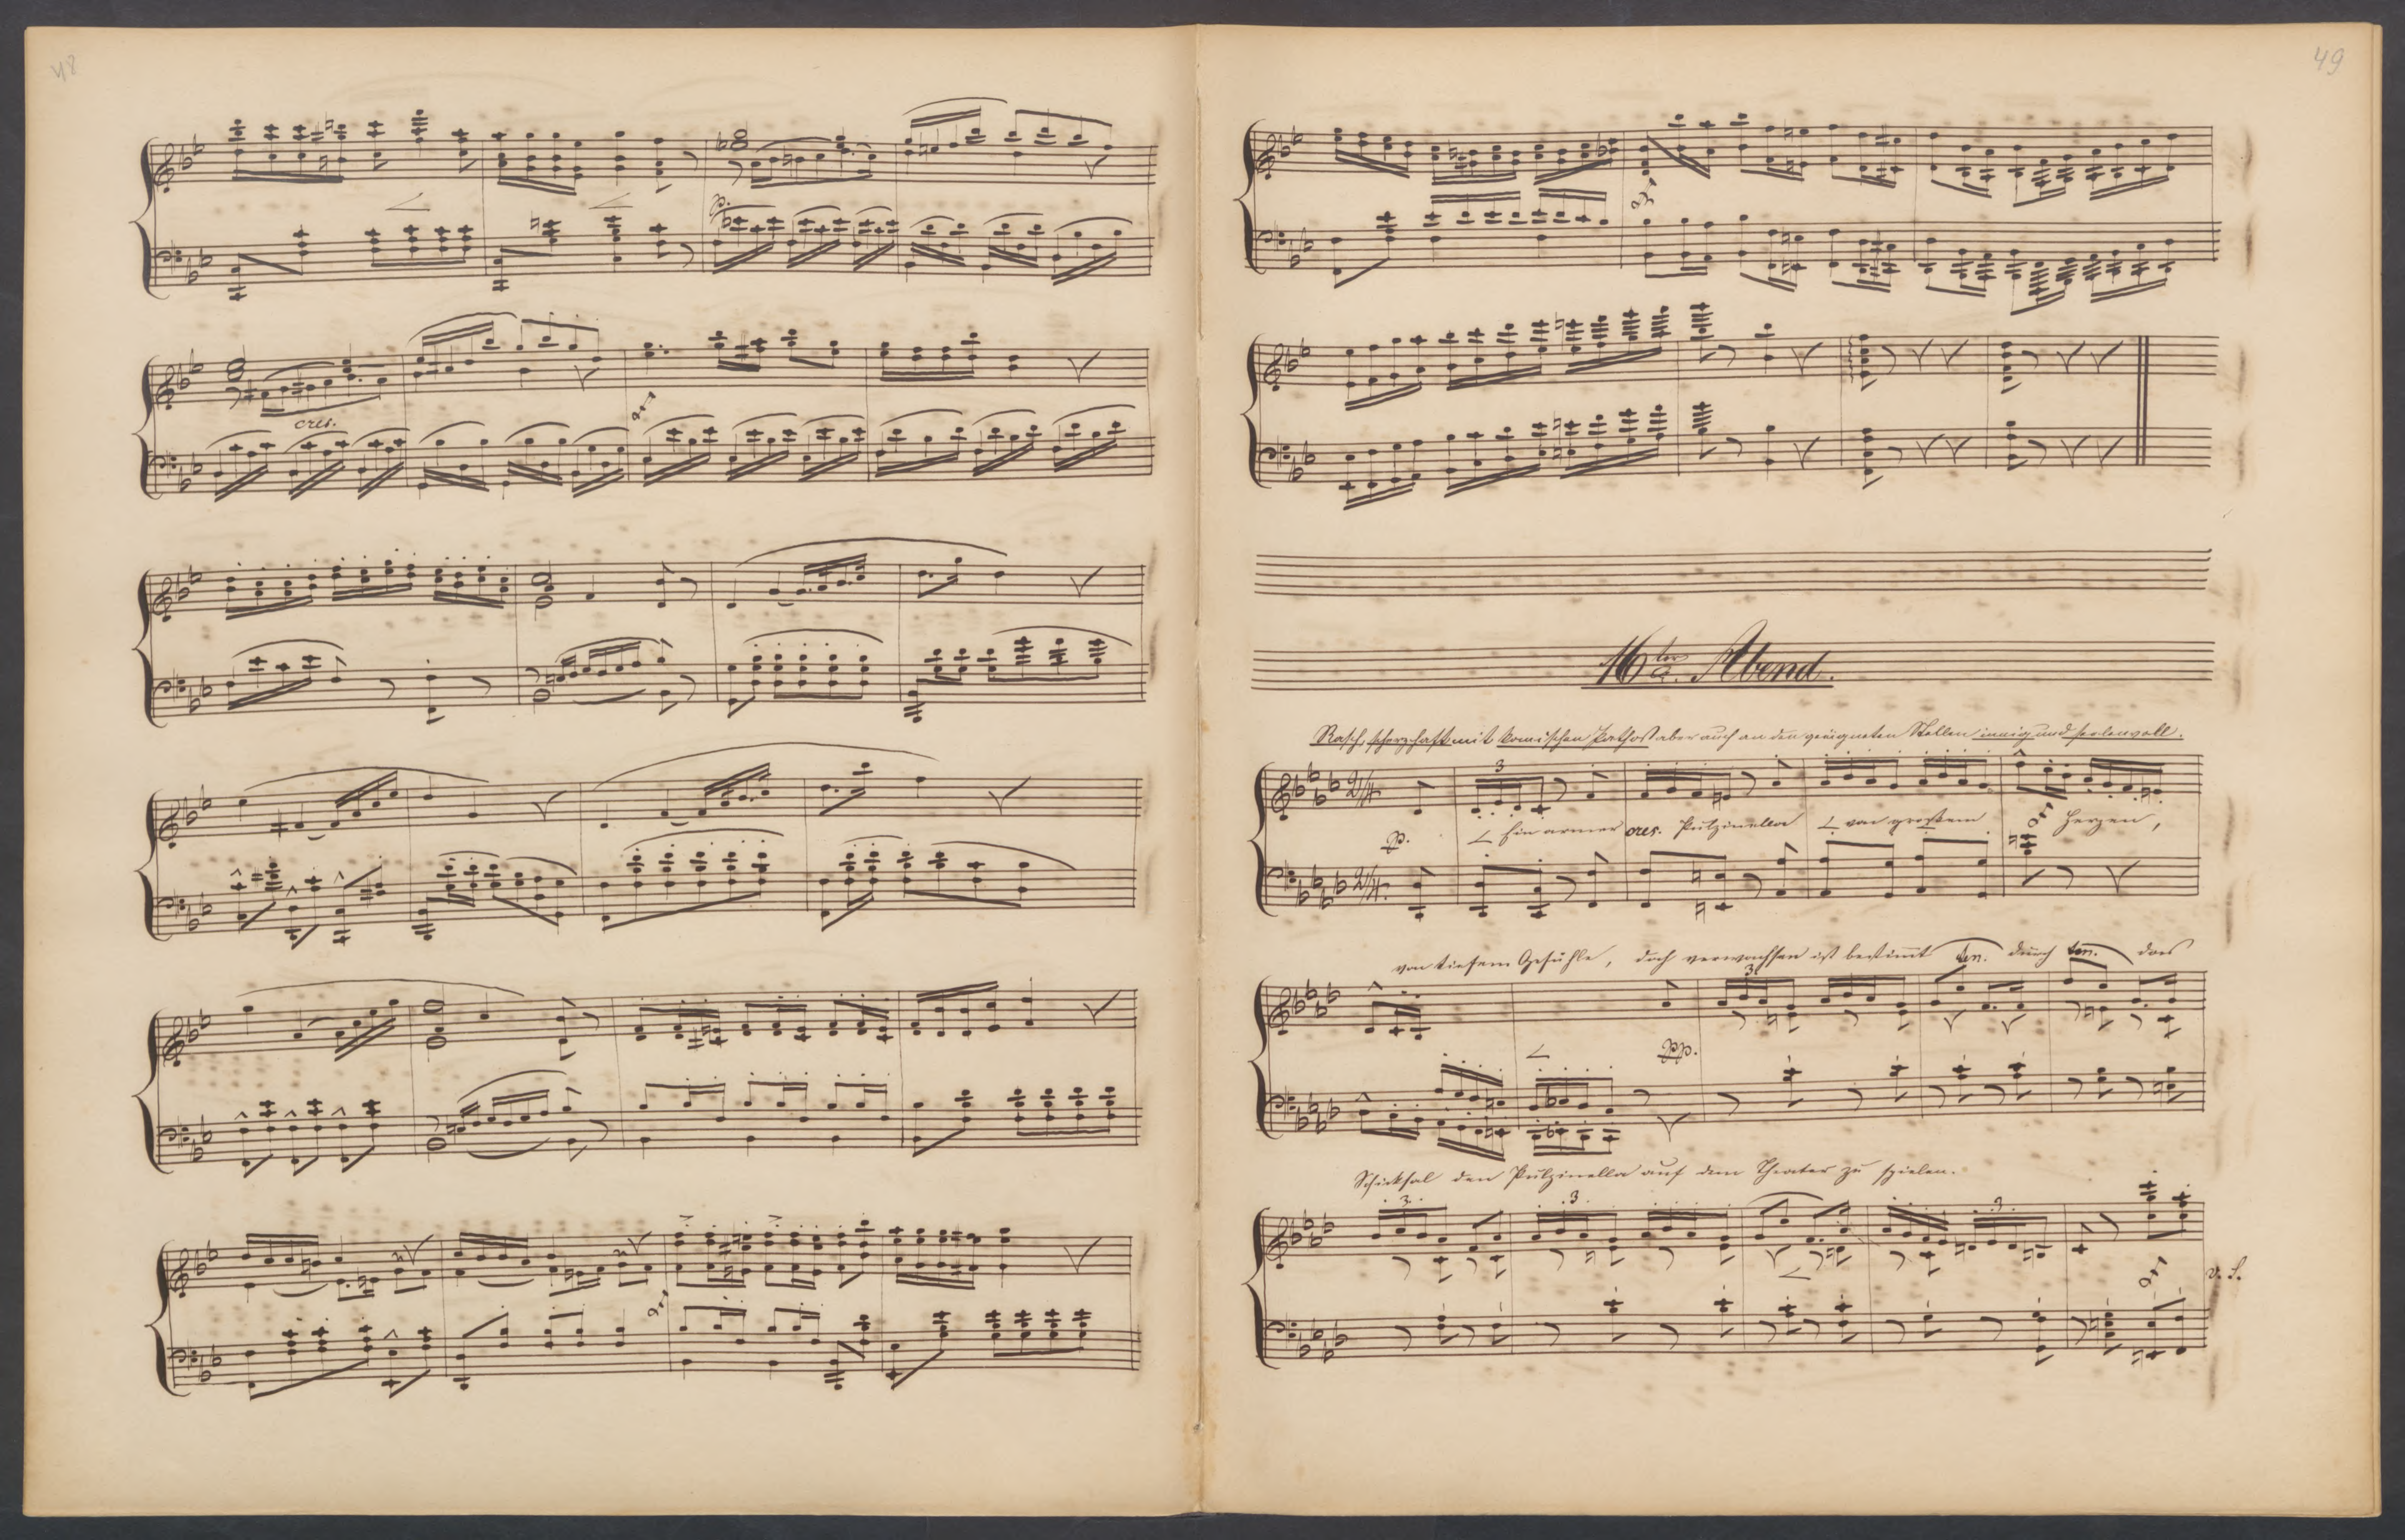 48
p.
cres.
49
16ter Abend.
Rasch, scherzhaft mit komischen Pathos aber auch an den geeigneten Stellen innig und seelenvoll.
2/4.
3
p.
Ein armer cres. Pulzinella von großem Herzen,
2/4.
von tiefem Gefühle, doch verwachsen ist bestimmt ten. durch ten. das
3
pp.
Schicksal den Pulzinella auf dem Theater zu spielen.
3 3 3
v. S.